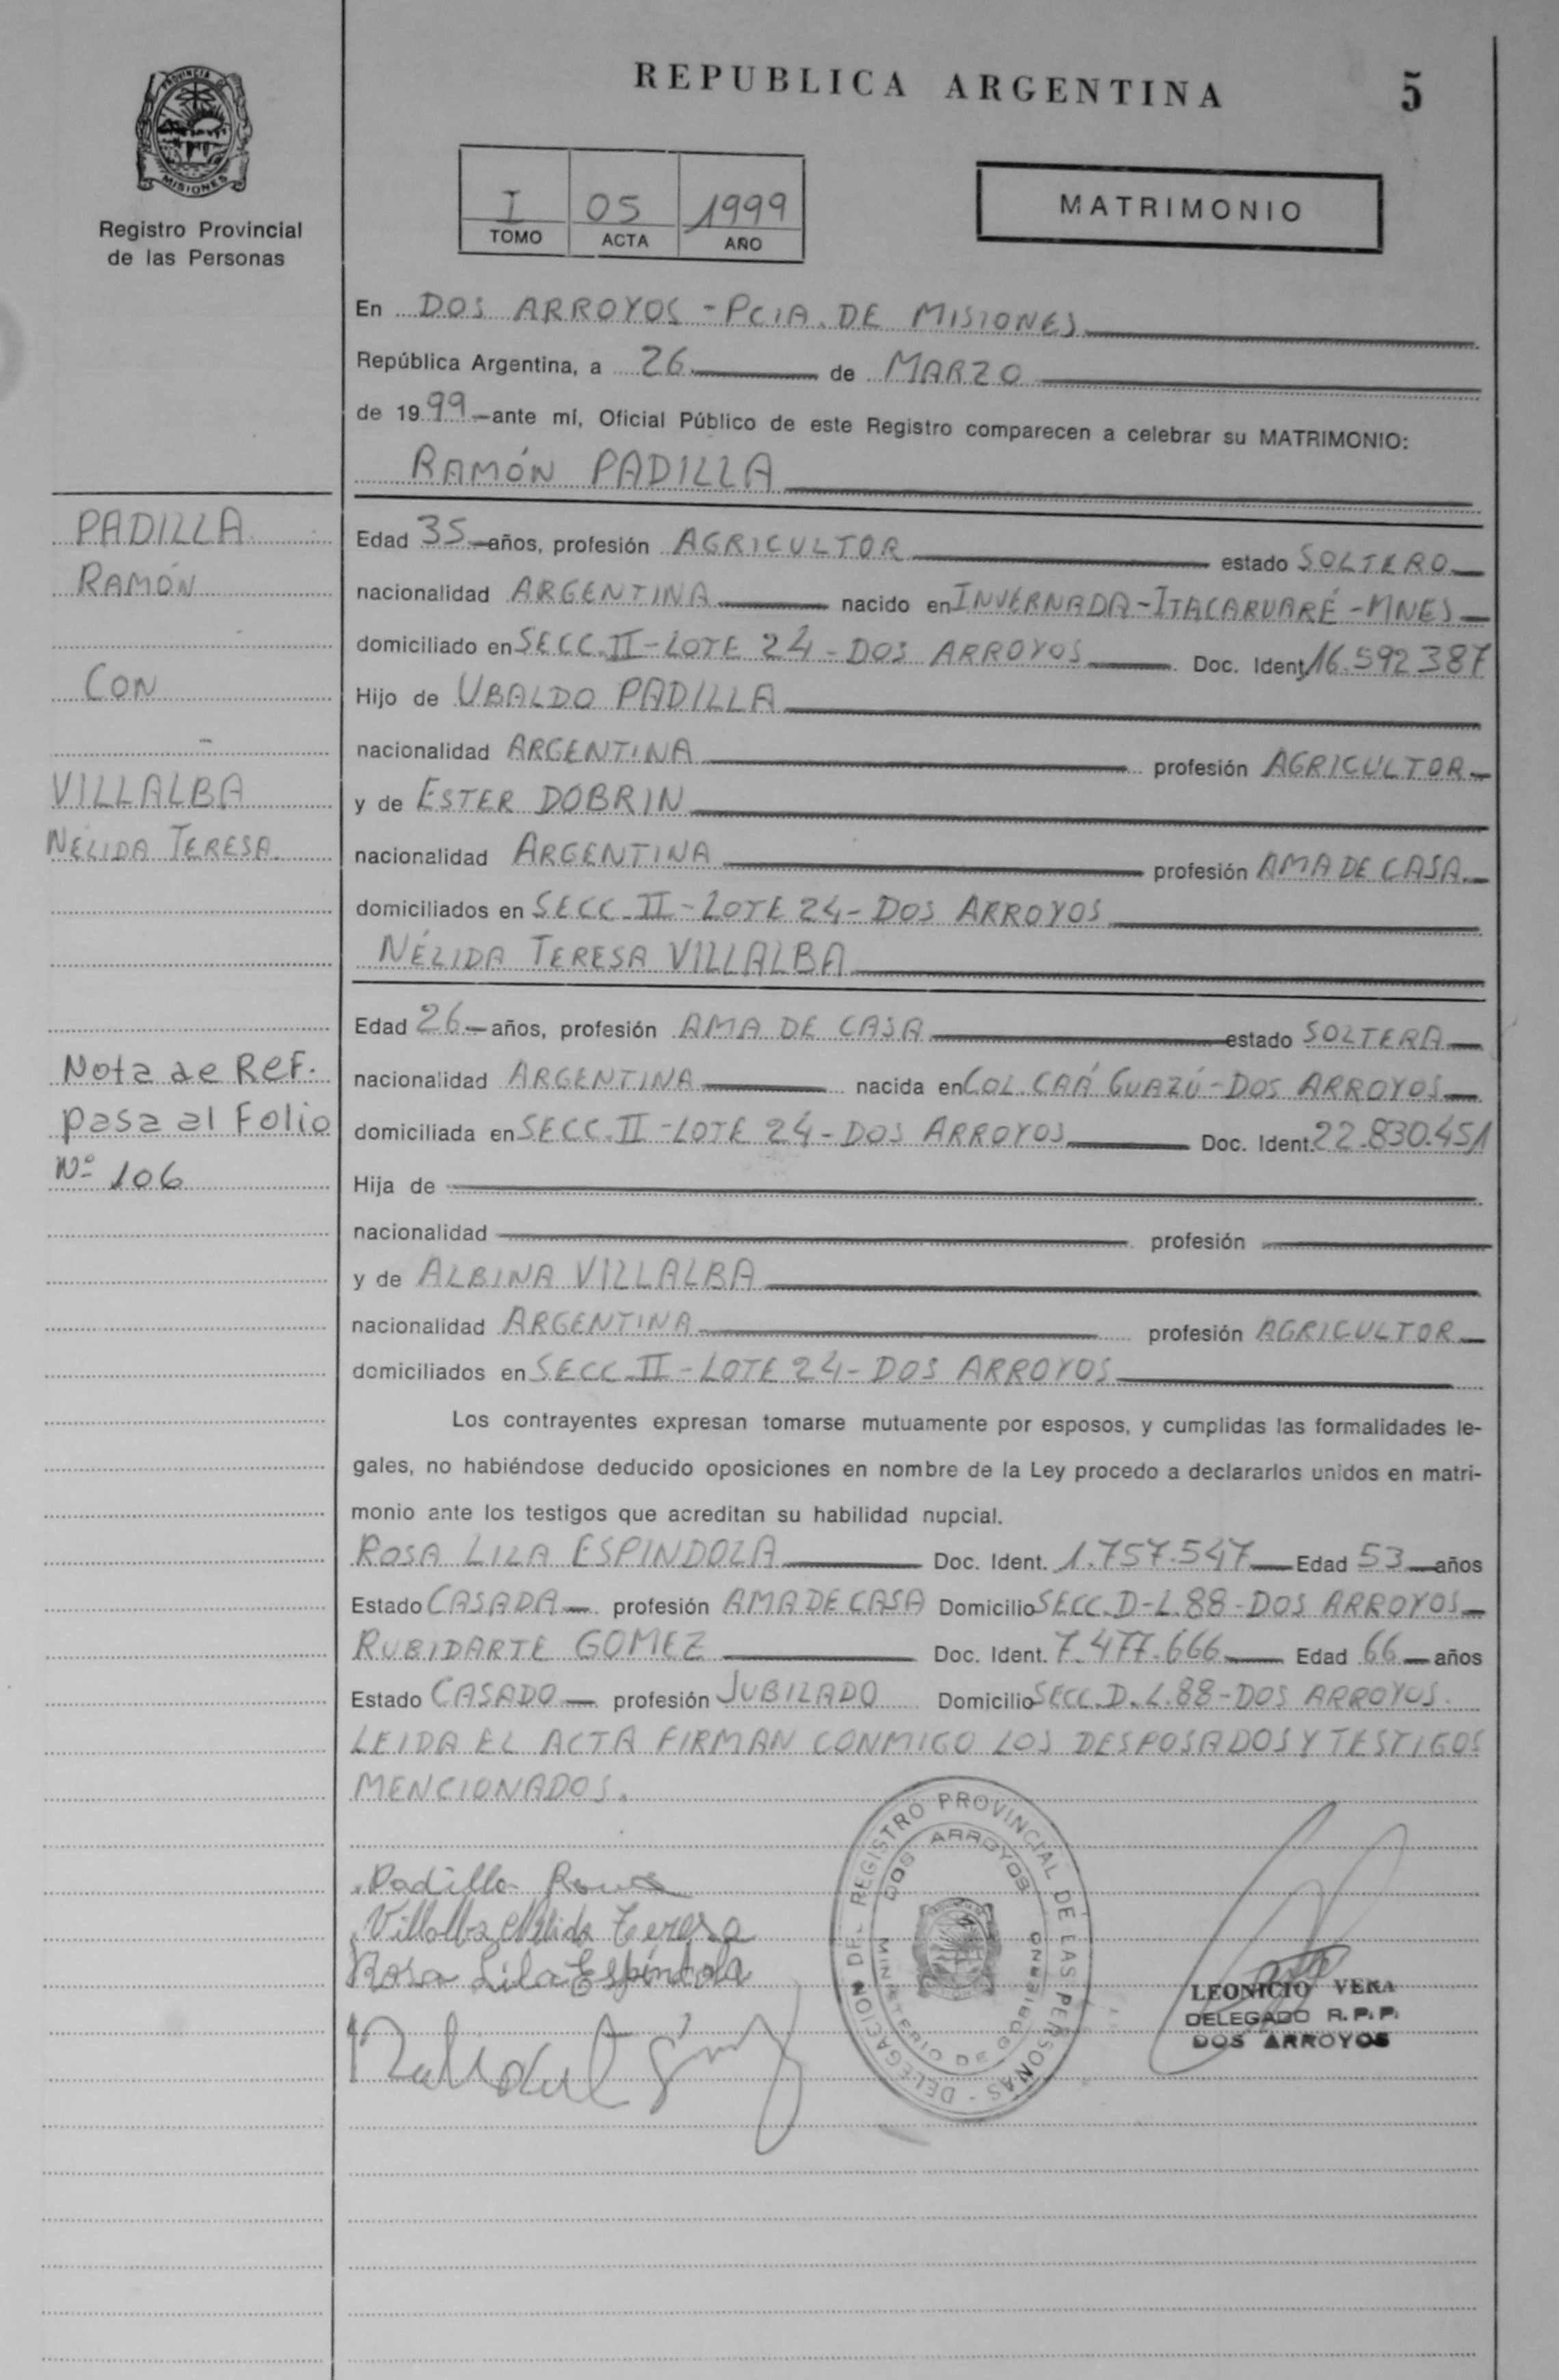 REPUBLICA ARGENTINA 5
PROVINCIA DE
MISIONES
Registro Provincial
de las Personas
I 05 1999
TOMO ACTA AÑO
MATRIMONIO
En DOS ARROYOS - PCIA. DE MISIONES
República Argentina, a 26 de MARZO
de 1999 ante mí, Oficial Público de este Registro comparecen a celebrar su MATRIMONIO:
RAMÓN PADILLA
PADILLA
RAMÓN
CON
VILLALBA
NÉLIDA TERESA
Nota de Ref.
pasa al Folio
Nº 106
Edad 35 años, profesión AGRICULTOR estado SOLTERO
nacionalidad ARGENTINA nacido en INVERNADA-ITACARUARÉ-MNES
domiciliado en SECC. II-LOTE 24-DOS ARROYOS Doc. Ident. 16.592387
Hijo de UBALDO PADILLA
nacionalidad ARGENTINA profesión AGRICULTOR
y de ESTER DOBRIN
nacionalidad ARGENTINA profesión AMA DE CASA
domiciliados en SECC. II-LOTE 24-DOS ARROYOS
NÉLIDA TERESA VILLALBA
Edad 26 años, profesión AMA DE CASA estado SOLTERA
nacionalidad ARGENTINA nacida en COL. CAÁ GUAZÚ-DOS ARROYOS
domiciliada en SECC. II-LOTE 24-DOS ARROYOS Doc. Ident. 22.830.451
Hija de
nacionalidad profesión
y de ALBINA VILLALBA
nacionalidad ARGENTINA profesión AGRICULTOR
domiciliados en SECC. II-LOTE 24-DOS ARROYOS
Los contrayentes expresan tomarse mutuamente por esposos, y cumplidas las formalidades le-
gales, no habiéndose deducido oposiciones en nombre de la Ley procedo a declararlos unidos en matri-
monio ante los testigos que acreditan su habilidad nupcial.
ROSA LILA ESPINDOLA Doc. Ident. 1.757.547 Edad 53 años
Estado CASADA profesión AMA DE CASA Domicilio SECC. D-L.88-DOS ARROYOS
RUBIDARTE GOMEZ Doc. Ident. 7.477.666 Edad 66 años
Estado CASADO profesión JUBILADO Domicilio SECC. D. L.88-DOS ARROYOS.
LEIDA EL ACTA FIRMAN CONMIGO LOS DESPOSADOS Y TESTIGOS
MENCIONADOS.
Padilla
Villalba Nélida Teresa
Rosa Lila Espíndola
DELEGACION DEL REGISTRO PROVINCIAL DE LAS PERSONAS
DOS ARROYOS
MINISTERIO DE GOBIERNO
LEONICIO VERA
DELEGADO R.P.P.
DOS ARROYOS